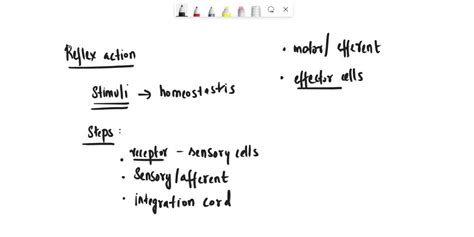 Reflex action
Stimuli → homeostastis
Steps :
• receptor – sensory cells
• Sensory/afferent
• integration cord
• motor/ efferent
• effector cells